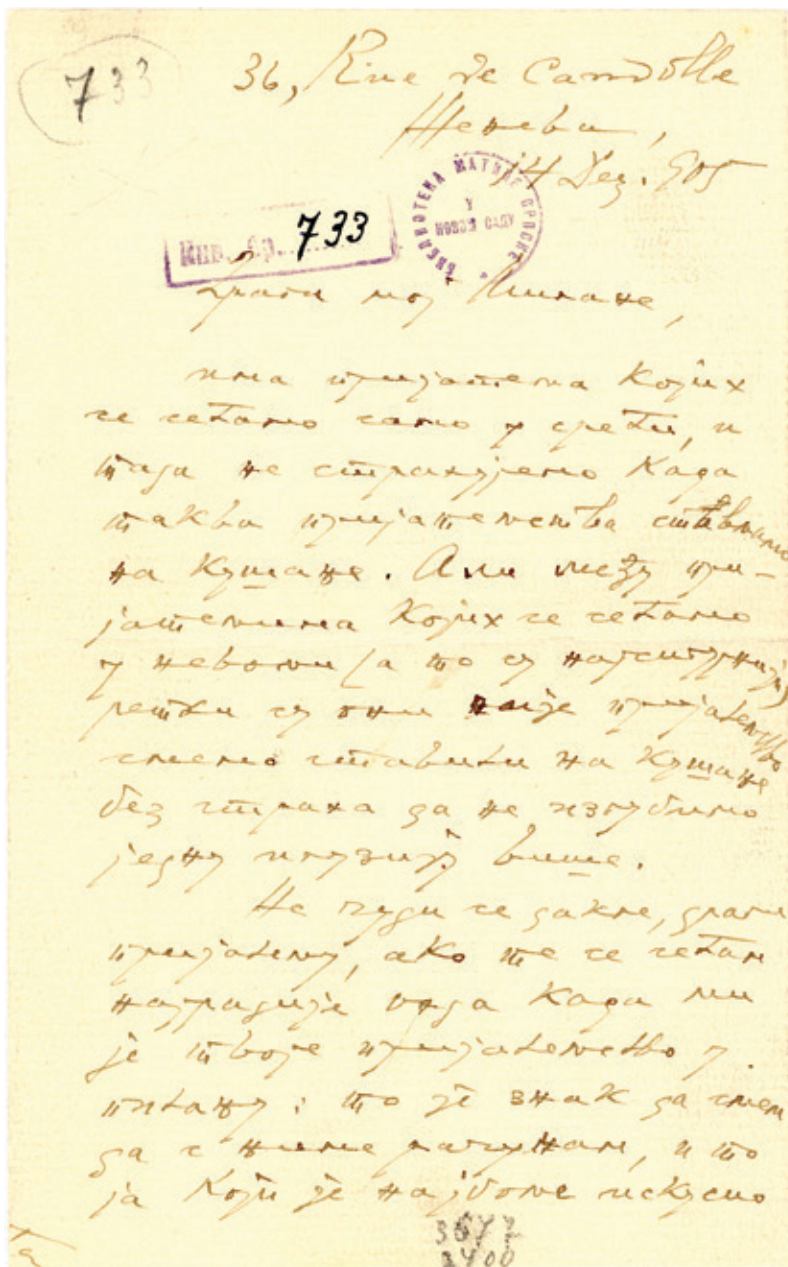 733
36, Rue de Candolle
Женева,
14 Дез. 905
БИБЛИОТЕКА МАТИЦЕ СРПСКЕ
У
НОВОМ САДУ
Инв. бр. 733
Драги мој Милане,
има пријатеља којих
се сећамо само у срећи, и
тада не страхујемо када
таква пријатељства стављамо
на кушање. Али међу при-
јатељима којих се сећамо
у невољи (а то су најсигурнији)
ретки су они чије пријатељство
смемо ставити на кушање
без страха да не изгубимо
једну илузију више.
Не чуди се дакле, драги
пријатељу, ако те се сећам
најрадије онда када ми
је твоје пријатељство у
питању: то је знак да смем
да с њиме рачунам, и то
ја који је најбоље искусио
3577
2400